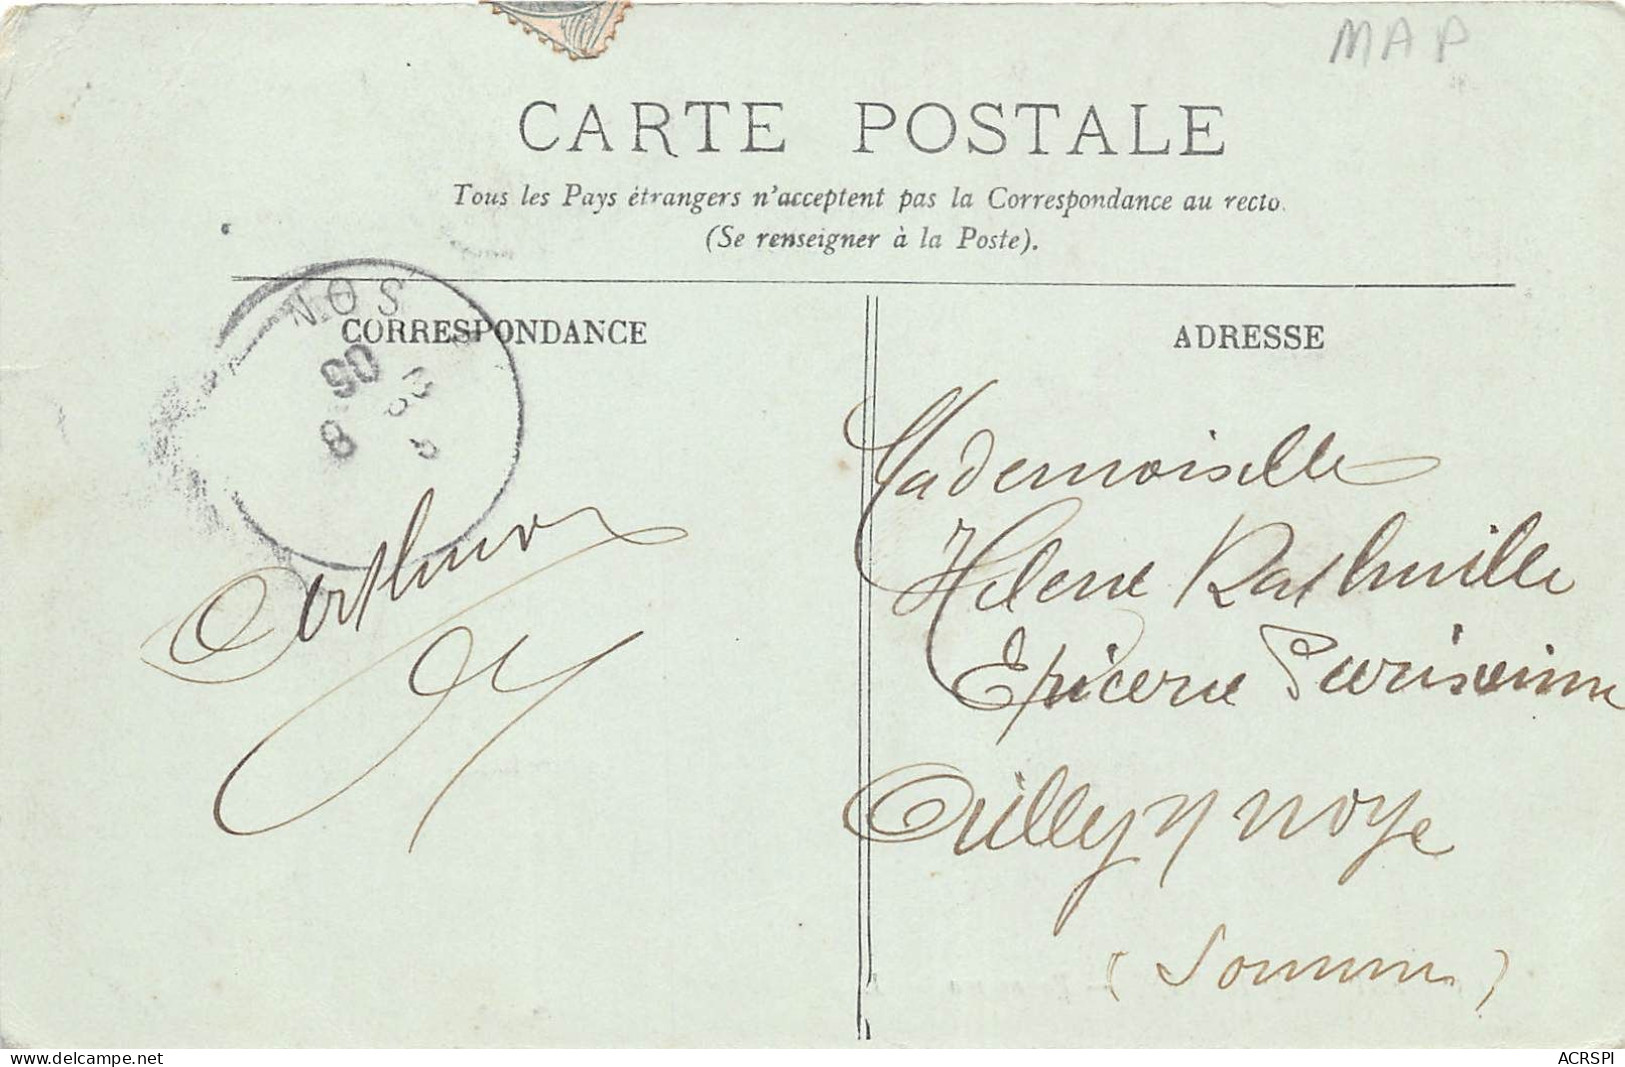 MAP
CARTE POSTALE
Tous les Pays étrangers n'acceptent pas la Correspondance au recto.
(Se renseigner à la Poste).
CORRESPONDANCE
ADRESSE
8
05
Arthur
Mademoiselle
Helene Rathuille
Epicerie Parisienne
Ailly s/ Noye
(Somme)
www.delcampe.net
ACRSPI